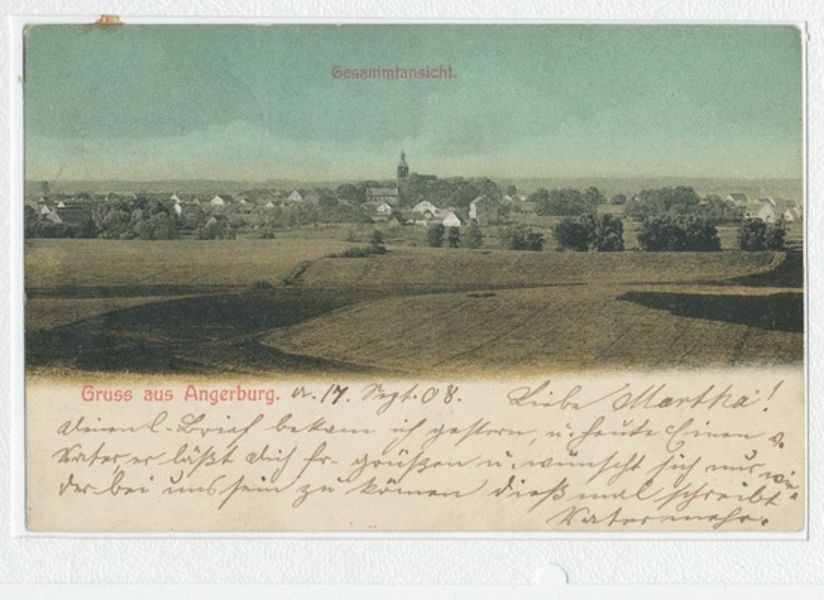 Gesammtansicht.
Gruss aus Angerburg. d. 17 Sept. 08. Liebe Martha!
deinen l. Brief bekam ich gestern, u. heute Einen v.
Vater, er läßt dich hr. grüßen u. wünscht sich nur wie-
der bei uns sein zu können dießmal schreibt
Vater mehr.